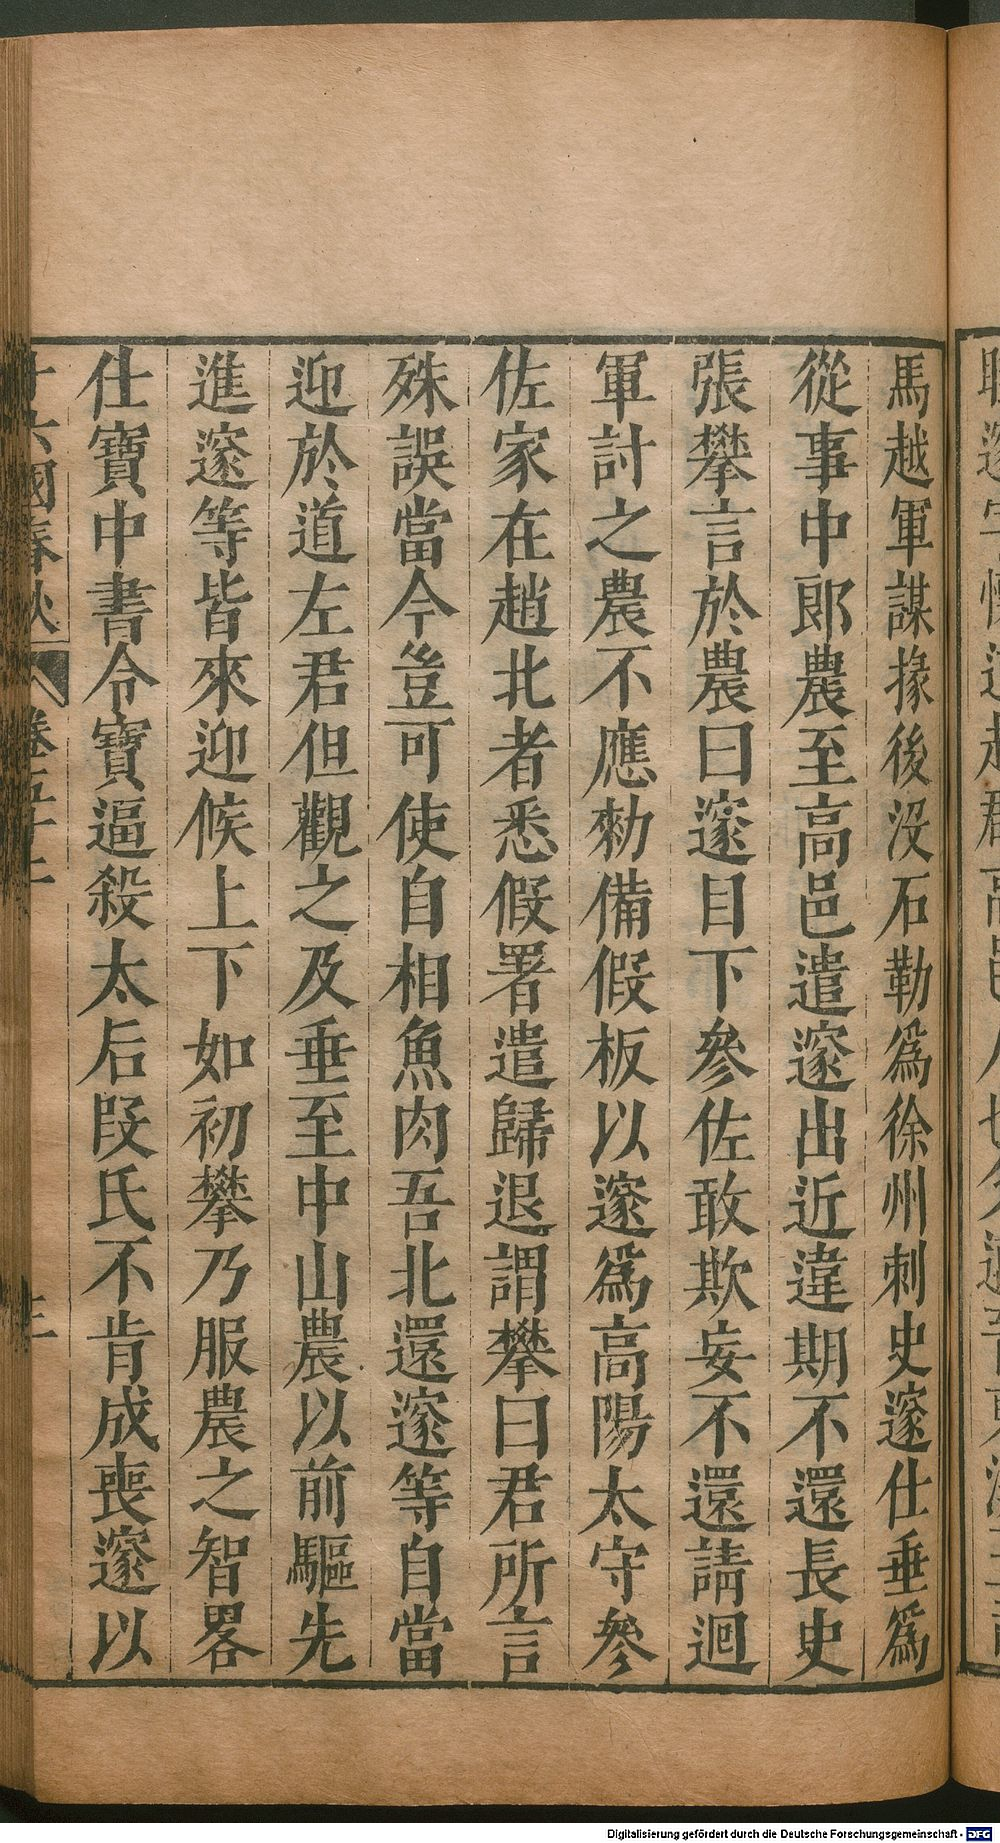 馬越軍謀掾後沒石勒爲徐州刺史邃仕垂爲
從事中郎農至高邑遣邃出近違期不還長史
張攀言於農曰邃目下參佐敢欺妄不還請迴
軍討之農不應勑備假板以邃爲高陽太守參
佐家在趙北者悉假署遣歸退謂攀曰君所言
殊誤當今豈可使自相魚肉吾北還邃等自當
迎於道左君但觀之及垂至中山農以前驅先
進邃等皆來迎候上下如初攀乃服農之智畧
仕寶中書令寶逼殺太后段氏不肯成喪邃以
十六國春秋 卷五十二
Digitalisierung gefördert durch die Deutsche Forschungsgemeinschaft - DFG